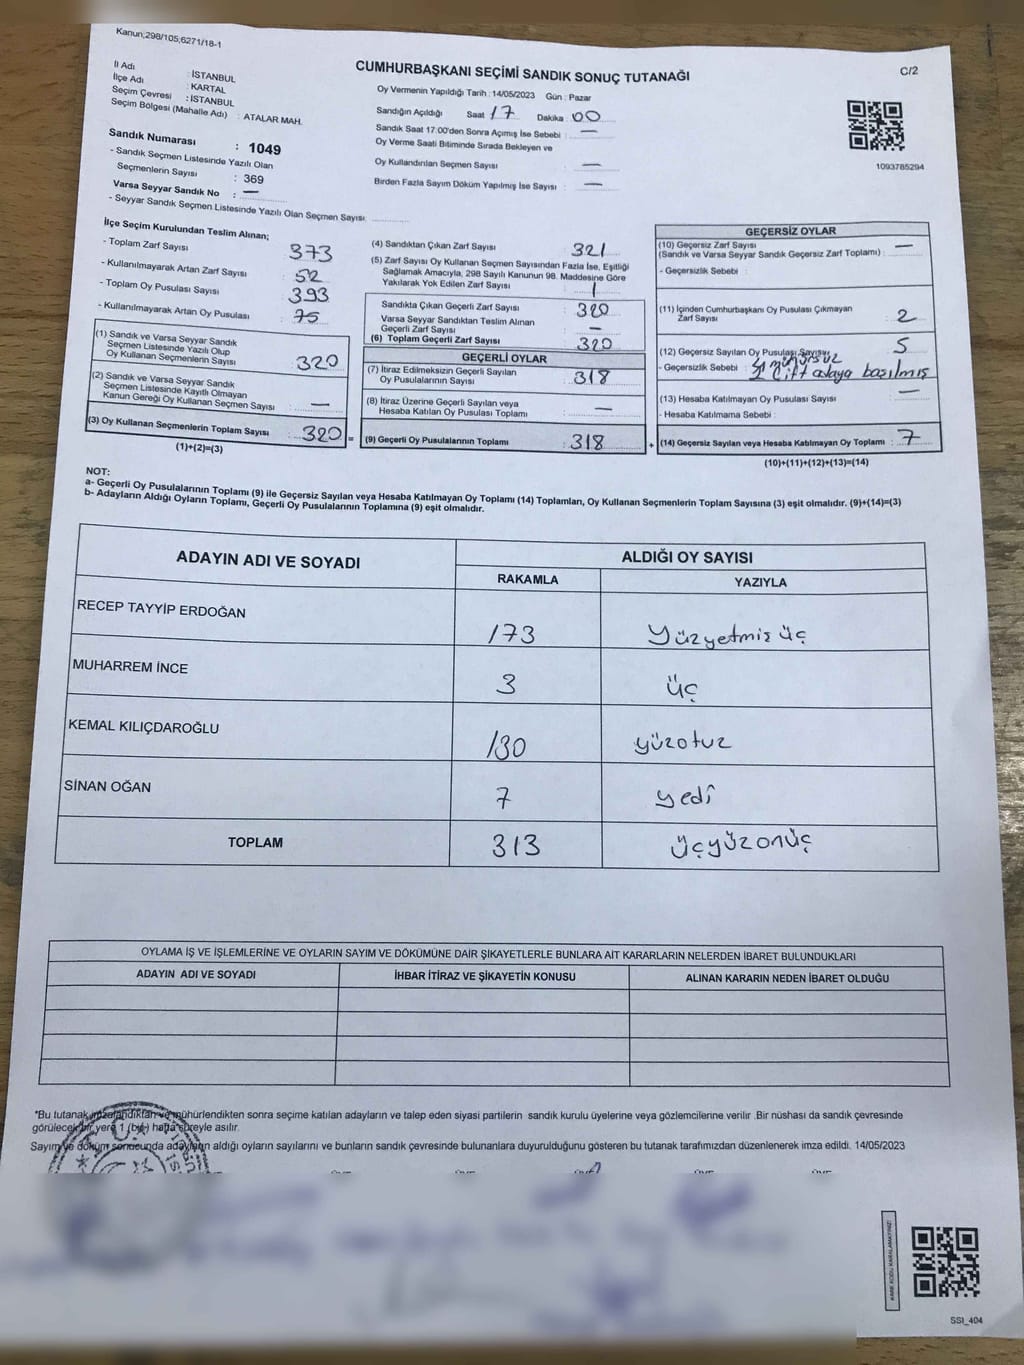 Kanun;298/105;6271/18-1
CUMHURBAŞKANI SEÇİMİ SANDIK SONUÇ TUTANAĞI
C/2
İl Adı : İSTANBUL
İlçe Adı : KARTAL
Seçim Çevresi : İSTANBUL
Seçim Bölgesi (Mahalle Adı) : ATALAR MAH.
Sandık Numarası : 1049
- Sandık Seçmen Listesinde Yazılı Olan
Seçmenlerin Sayısı : 369
Varsa Seyyar Sandık No : —
- Seyyar Sandık Seçmen Listesinde Yazılı Olan Seçmen Sayısı:
Oy Vermenin Yapıldığı Tarih : 14/05/2023 Gün : Pazar
Sandığın Açıldığı Saat 17 Dakika : 00
Sandık Saat 17:00'den Sonra Açımış İse Sebebi : —
Oy Verme Saati Bitiminde Sırada Bekleyen ve
Oy Kullandırılan Seçmen Sayısı —
Birden Fazla Sayım Döküm Yapılmış İse Sayısı : —
1093785294
İlçe Seçim Kurulundan Teslim Alınan;
- Toplam Zarf Sayısı 373
- Kullanılmayarak Artan Zarf Sayısı : 52
- Toplam Oy Pusulası Sayısı 393
- Kullanılmayarak Artan Oy Pusulası : 75
(1) Sandık ve Varsa Seyyar Sandık
Seçmen Listesinde Yazılı Olup
Oy Kullanan Seçmenlerin Sayısı : 320
(2) Sandık ve Varsa Seyyar Sandık
Seçmen Listesinde Kayıtlı Olmayan
Kanun Gereği Oy Kullanan Seçmen Sayısı : —
(3) Oy Kullanan Seçmenlerin Toplam Sayısı : 320 =
(1)+(2)=(3)
(4) Sandıktan Çıkan Zarf Sayısı 321
(5) Zarf Sayısı Oy Kullanan Seçmen Sayısından Fazla İse, Eşitliği
Sağlamak Amacıyla, 298 Sayılı Kanunun 98. Maddesine Göre
Yakılarak Yok Edilen Zarf Sayısı : 1
Sandıkta Çıkan Geçerli Zarf Sayısı : 320
Varsa Seyyar Sandıktan Teslim Alınan
Geçerli Zarf Sayısı —
(6) Toplam Geçerli Zarf Sayısı : 320
GEÇERLİ OYLAR
(7) İtiraz Edilmeksizin Geçerli Sayılan
Oy Pusulalarının Sayısı : 318
(8) İtiraz Üzerine Geçerli Sayılan veya
Hesaba Katılan Oy Pusulası Toplamı : —
(9) Geçerli Oy Pusulalarının Toplamı : 318 +
GEÇERSİZ OYLAR
(10) Geçersiz Zarf Sayısı —
(Sandık ve Varsa Seyyar Sandık Geçersiz Zarf Toplamı) :
- Geçersizlik Sebebi :
(11) İçinden Cumhurbaşkanı Oy Pusulası Çıkmayan
Zarf Sayısı : 2
(12) Geçersiz Sayılan Oy Pusulası Sayısı 5
- Geçersizlik Sebebi : 1 mühürsüz
4 Çift adaya basılmış
(13) Hesaba Katılmayan Oy Pusulası Sayısı —
- Hesaba Katılmama Sebebi :
(14) Geçersiz Sayılan veya Hesaba Katılmayan Oy Toplamı : 7
(10)+(11)+(12)+(13)=(14)
NOT:
a- Geçerli Oy Pusulalarının Toplamı (9) ile Geçersiz Sayılan veya Hesaba Katılmayan Oy Toplamı (14) Toplamları, Oy Kullanan Seçmenlerin Toplam Sayısına (3) eşit olmalıdır. (9)+(14)=(3)
b- Adayların Aldığı Oyların Toplamı, Geçerli Oy Pusulalarının Toplamına (9) eşit olmalıdır.
ADAYIN ADI VE SOYADI ALDIĞI OY SAYISI
RAKAMLA YAZIYLA
RECEP TAYYİP ERDOĞAN 173 Yüzyetmiş üç
MUHARREM İNCE 3 üç
KEMAL KILIÇDAROĞLU 130 yüzotuz
SİNAN OĞAN 7 yedi
TOPLAM 313 üçyüzonüç
OYLAMA İŞ VE İŞLEMLERİNE VE OYLARIN SAYIM VE DÖKÜMÜNE DAİR ŞİKAYETLERLE BUNLARA AİT KARARLARIN NELERDEN İBARET BULUNDUKLARI
ADAYIN ADI VE SOYADI İHBAR İTİRAZ VE ŞİKAYETİN KONUSU ALINAN KARARIN NEDEN İBARET OLDUĞU
*Bu tutanak imzalandıktan ve mühürlendikten sonra seçime katılan adayların ve talep eden siyasi partilerin sandık kurulu üyelerine veya gözlemcilerine verilir .Bir nüshası da sandık çevresinde
görülecek bir yere 1 (bir) hafta süreyle asılır.
Sayım ve döküm sonucunda adayların aldığı oyların sayılarını ve bunların sandık çevresinde bulunanlara duyurulduğunu gösteren bu tutanak tarafımızdan düzenlenerek imza edildi. 14/05/2023
KARE KODU KARALAMAYINIZ!
SSI_404